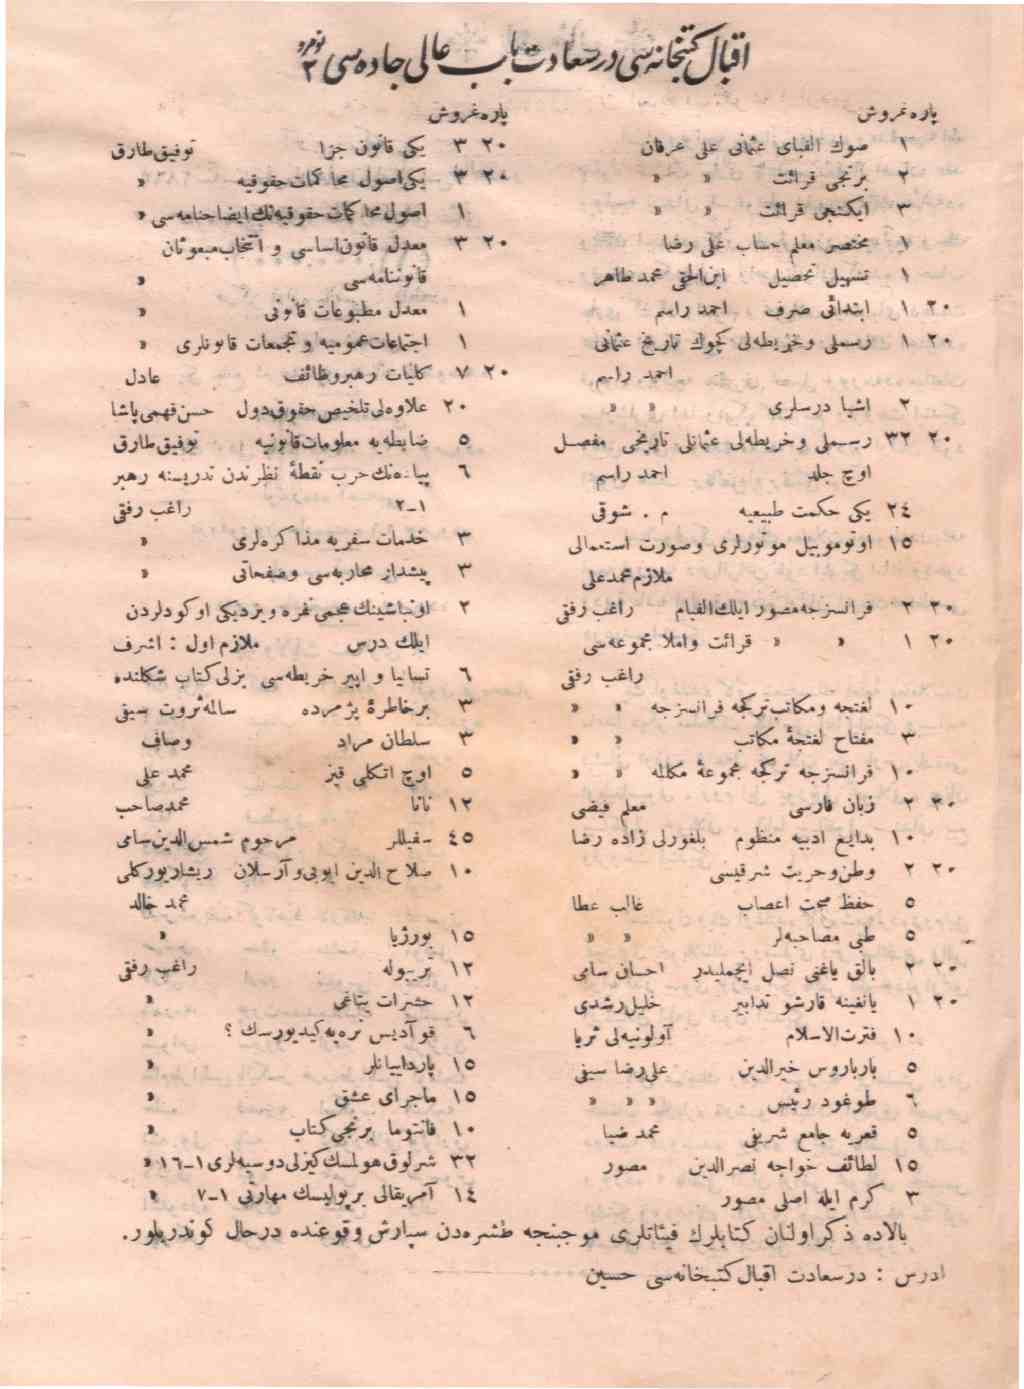 اقبال كتبخانه‌سی درسعادت باب عالی جاده‌سی نومرو ۲
پاره غروش
۱ صوك الفبای عثمانی علی عرفان
۲ برنجی قرائت » »
۳ ایكنجی قرائت » »
۱ مختصر معلم حساب علی رضا
۱ تسهیل تحصیل ابن‌الحقی محمد طاهر
۲۰ ۱ ابتدائی صرف احمد راسم
۲۰ ۱ رسملی وخریطه‌لی كچوك تاریخ عثمانی
احمد راسم
۲ اشیا درسلری » »
۲۰ ۳۲ رسملی وخریطه‌لی عثمانلی تاریخی مفصل
اوچ جلد احمد راسم
۲٤ یكی حكمت طبیعیه م . شوقی
۱۵ اوتوموبیل موتورلری وصورت استعمالی
ملازم محمدعلی
۲۰ ۲ فرانسزجه مصور ایلك‌الفبام راغب رفقی
۲۰ ۱ » » قرائت واملا مجموعه‌سی
راغب رفقی
۱۰ لغتجه ومكاتب‌تركجه فرانسزجه » »
۳ مفتاح لغتجهٔ مكاتب » »
۱۰ فرانسزجه تركجه مجموعهٔ مكالمه » »
۲۰ ۲ زبان فارسی معلم فیضی
۱۰ بدایع ادبیه منظوم بلغورلی زاده رضا
۲۰ ۲ وطن‌وحریت شرقیسی
۵ حفظ صحت اعصاب غالب عطا
۵ طبی مصاحبه‌لر » »
۲۰ ۲ بالق یاغنی نصل ایچملیدر احسان سامی
۲۰ ۱ یانغینه قارشو تدابیر خلیل‌رشدی
۱۰ فترت‌الاسلام آولونیه‌لی ثریا
۵ بارباروس خیرالدین علی‌رضا سیفی
٦ طوغود رئیس » » »
۵ قعریه جامع شریفی محمد ضیا
۱۵ لطائف خواجه نصرالدین مصور
۳ كرم ایله اصلی مصور
پاره غروش
۲۰ ۳ یكی قانون جزا توفیق‌طارق
۲۰ ۳ یكی‌اصول محاكمات‌حقوقیه »
۱ اصول محاكمات‌حقوقیه‌نك‌ایضاحنامه‌سی »
۲۰ ۳ معدل قانون‌اساسی و انتخاب‌مبعوثان
قانوننامه‌سی »
۱ معدل مطبوعات قانونی »
۱ اجتماعات‌عمومیه و تجمعات قانونلری »
۲۰ ۷ كلیات رهبروظائف عادل
۲۰ علاوه‌لی‌تلخیص‌حقوق‌دول حسن‌فهمی‌پاشا
۵ ضابطه‌یه معلومات‌قانونیه توفیق‌طارق
٦ پیاده‌نك‌حرب نقطهٔ نظرندن تدریسنه رهبر
۱-۲ راغب رفقی
۳ خدمات سفریه مذاكره‌لری »
۳ پیشدار محاربه‌سی وصفحاتی »
۲ اونباشینك‌عجمی نفره ویردیكی اوكودلردن
ایلك درس ملازم اول : اشرف
٦ تسالیا و اپیر خریطه‌سی بزلی‌كتاب شكلنده
۳ برخاطرهٔ پژمرده سالمه‌ثروت سیفی
۳ سلطان مراد وصاف
۵ اوچ اتكلی قیز محمد علی
۱۲ نانا محمدصاحب
٤۵ سفیللر مرحوم شمس‌الدین‌سامی
۱۰ صلاح‌الدین ایوبی‌وآرسلان ریشاریوركلی
محمد خالد
۱۵ بورژیا »
۱۲ تریبوله راغب رفقی
۱۲ حشرات یتاغی »
٦ قوآدیس نره‌یه‌كیدیورسك ؟ »
۱۵ پاردایانلر »
۱۵ ماجرای عشق »
۱۰ فانتوما برنجی‌كتاب »
۳۲ شرلوق‌هولمسك‌كیزلی‌دوسیه‌لری ۱-۱٦ »
۱٤ آمریقالی بریولیسك مهارتی ۱-۷ »
بالاده ذكر اولنان كتابلرك فیئاتلری موجبنجه طشره‌دن سپارش وقوعنده درحال كوندریلور.
ادرس : درسعادت اقبال‌كتبخانه‌سی حسین